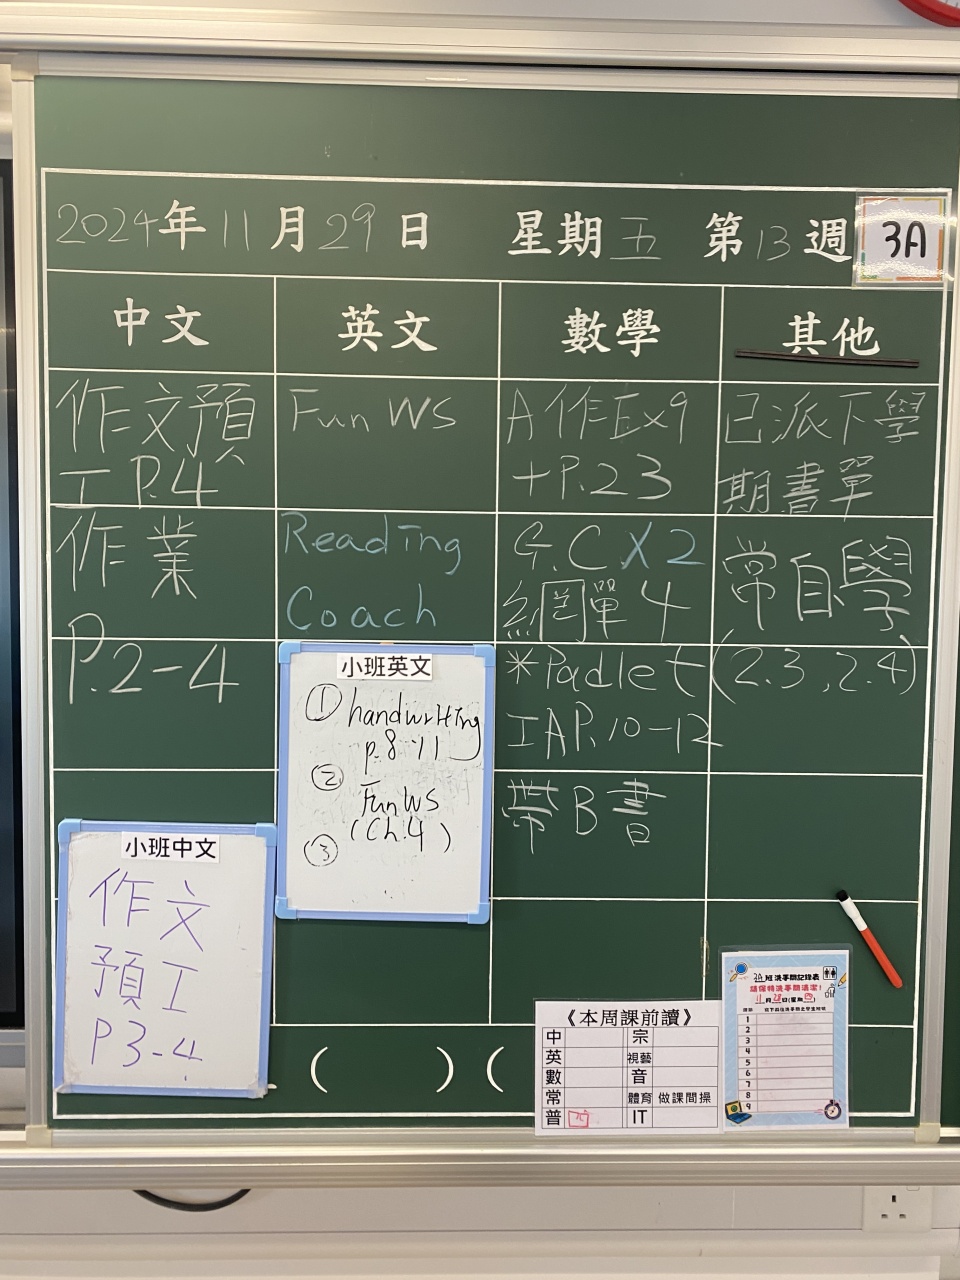 2024年11月29日 星期五 第13週 3A
中文 英文 數學 其他
作文預
工P.4
作業
P.2-4
Fun WS
Reading
Coach
A作Ex9
+P.23
G.C X2
網單4
*Padlet
IAP.10-12
帶B書
已派下學
期書單
常自學
(2.3,2.4)
小班英文
① handwriting
p.8-11
②
Fun WS
(Ch.4)
③
小班中文
作文
預工
P3-4
( ) (
《本周課前讀》
中 宗
英 視藝
數 音
常 體育 做課間操
普 IT
3A班洗手間記錄表
請保持洗手間清潔!
1
2
3
4
5
6
7
8
9